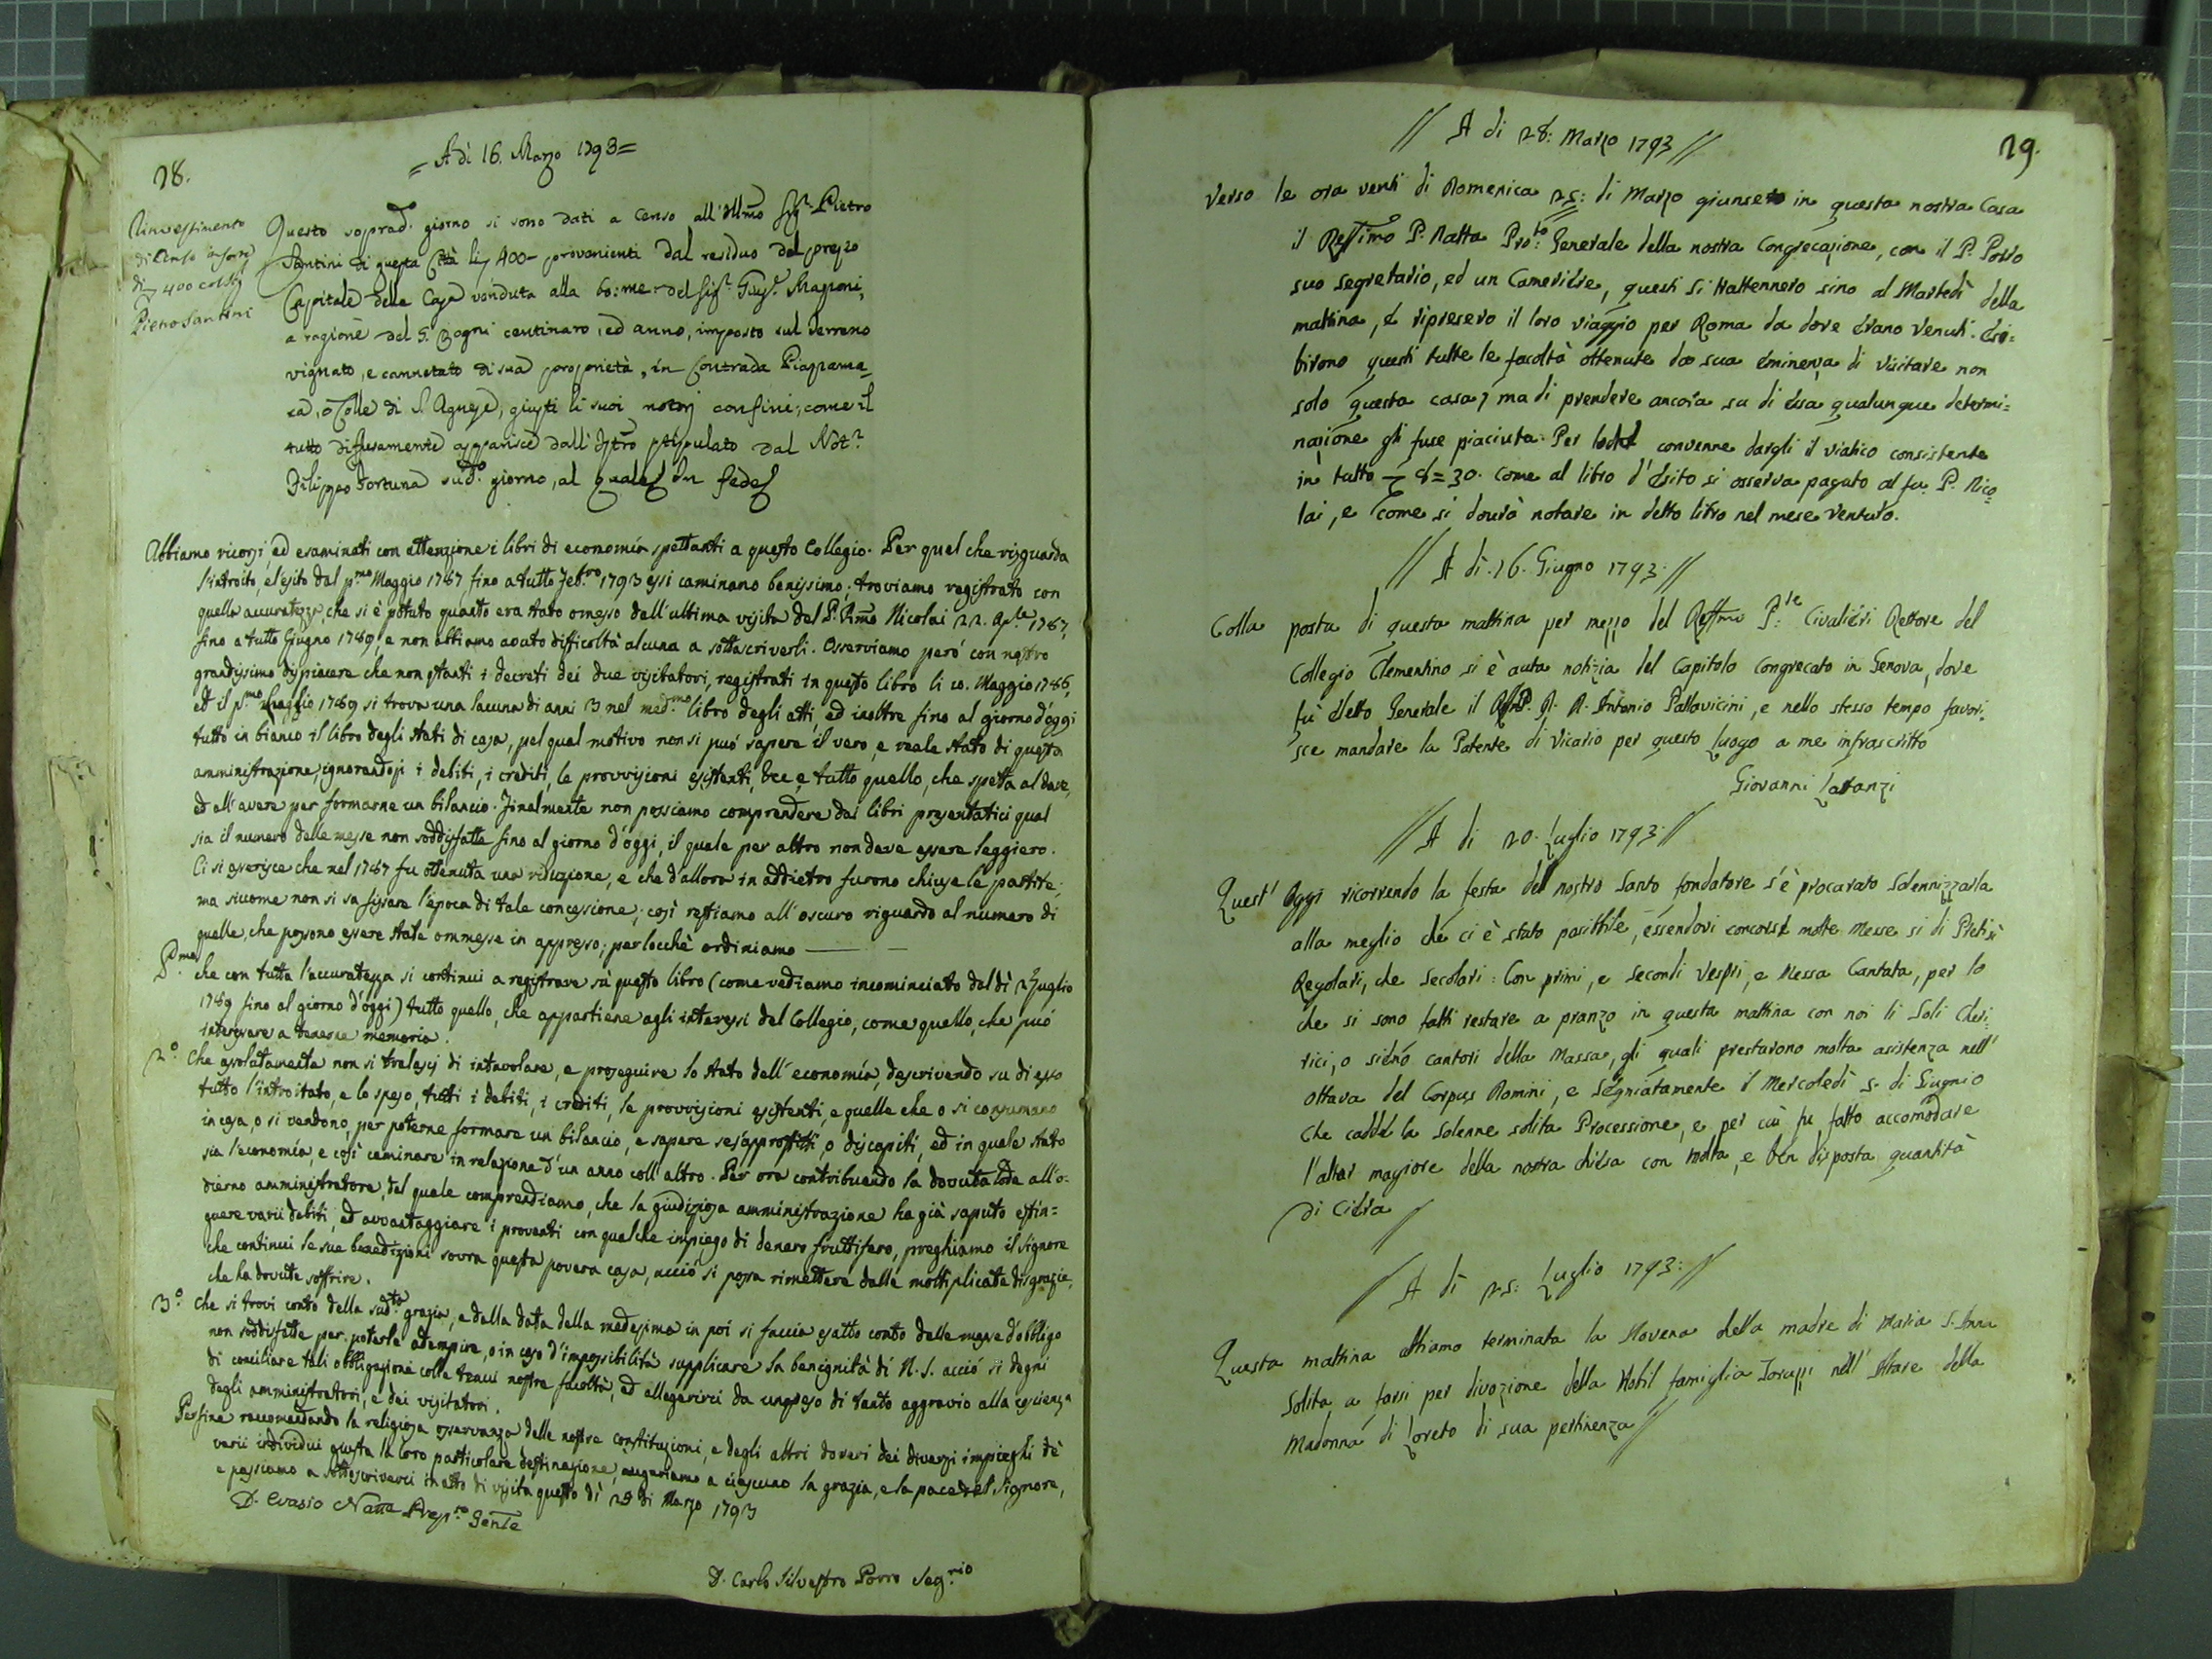 28.
= A dì 16. Marzo 1793 =
Rinvestimento
di Censo in sorte
di 400 col Sig.
Pietro Santini
Questo soprad.° giorno si sono dati a Censo all'Illmo Sig.r Pietro
Santini di questa Città 400 - provenienti dal residuo del prezzo
Capitale della Casa venduta alla bo: me: del Sig.r Magnoni,
a ragione del 5. ogni centinaro, ed anno, imposto sul terreno
vignato, e cannetato di sua proprietà, in Contrada
o Colle di S. Agnese, giusti li suoi notorj confini, come il
tutto diffusamente apparisce dall'Istro stipulato dal Not.r
Filippo Fortuna sud.° giorno, al quale In fede
Abbiamo ricorsi, ed esaminati con attenzione i libri di economía spettanti a questo Collegio. Per quel che risguarda
l'introito, e l'esito dal p.mo Maggio 1787, fino a tutto Feb.ro 1793 essi caminano benissimo; troviamo registrato con
quella accuratezza, che si è potuto quanto era stato omesso dall'ultima visita del P. Nicolai 22. Ap.le 1787,
fino a tutto Giugno 1789, e non abbiamo avuto difficoltà alcuna a sottoscriverli. Osserviamo però con nostro
grandissimo dispiacere che non stanti i decreti dei due visitatori, registrati in questo libro li 10. Maggio 1786,
ed il p.mo Maggio 1789 si trova una lacuna di anni 3 nel med.mo libro degli atti, ed inoltre fino al giorno d'oggi
tutto in bianco il libro degli stati di casa, pel qual motivo non si può sapere il vero, e reale stato di questa
amministrazione, ignorandosi i debiti, i crediti, le provvisioni esistenti, &c e tutto quello, che spetta al dare,
ed all'avere per formarne un bilancio. Finalmente non possiamo comprendere dai libri presentatici qual
sia il numero delle messe non soddisfatte fino al giorno d'oggi, il quale per altro non deve essere leggiero.
Ci si asserisce che nel 1787 fu ottenuta una riduzione, e che d'allora in addietro furono chiuse le partite;
ma siccome non si sa fissare l'epoca di tale concessione; così restiamo all'oscuro riguardo al numero di
quelle, che possono essere state ommesse in appresso; perlocchè ordiniamo
P.mo che con tutta l'accuratezza si continui a registrare sù questo libro (come vediamo incominciato dal dì 2 Luglio
1789 fino al giorno d'oggi) tutto quello, che appartiene agli interessi del Collegio, come quello, che può
interessare a tenerne memoria.
2.° che assolutamente non si tralasci di intavolare, e proseguire lo stato dell'economía, descrivendo su di esso
tutto l'introitato, e lo speso, tutti i debiti, i crediti, le provvisioni esistenti, e quelle che o si consumano
in casa, o si vendono, per poterne formare un bilancio, e sapere se s'approfitti, o discapiti, ed in quale stato
sia l'economía, e così caminare in relazione d'un anno coll'altro. Per ora contribuendo la dovuta lode all'o-
dierno amministratore, dal quale comprendiamo, che la giudiziosa amministrazione ha già saputo estin=
guere varii debiti, ed avvantaggiare i proventi con qualche impiego di denaro fruttifero, preghiamo il Signore
che continui le sue benedizioni sovra questa povera casa, acciò si possa rimettere dalle moltiplicate disgrazie,
che ha dovute soffrire.
3.° che si trovi conto della sud.ta grazia, e dalla data della medesima in poi si faccia esatto conto delle messe d'obbligo
non soddisfatte per poterle adempire, o in caso d'impossibilità supplicare la benignità di N. S. acciò si degni
di conciliare tali obbligazioni colle tenui nostre facoltà, ed allegerirci da un peso di tanto aggravio alla coscienza
degli amministratori, e dei visitatori.
Per fine raccomandando la religiosa osservanza delle nostre constituzioni, e degli altri doveri dei diversi impieghi de'
varii individui giusta la loro particolare destinazione, auguriamo a ciascuno la grazia, e la pace del Signore,
e passiamo a sottoscriverci in atto di visita questo dì 25 di Marzo 1793
D. Evasio Natta Prep.to Genle
D. Carlo Silvestro Porro Seg.rio
29.
// A di 28: Marzo 1793 //
Verso le ora venti di Domenica 25: di Marzo giunse in questa nostra Casa
il Ressimo P. Natta Pro:to Generale della nostra Congrecazione, con il P. Porro
suo segretario, ed un Cameriere, questi si trattennero sino al Martedì della
mattina, e ripresero il loro viaggio per Roma da dove erano venuti. Esi=
birono questi tutte le facoltà ottenute da sua Eminenza di visitare non
solo questa casa, ma di prendere ancora su di essa qualunque determi=
nazione gli fuse piaciuta. Per convenne dargli il viatico consistente
in tutto 8=30. come al libro d'Esito si osserva pagato al fu P. Nico
lai, e come si dourà notare in detto libro nel mese venturo.
// A di. 16. Giugno 1793. //
Colla posta di questa mattina per mezzo del Ressmo P:re Civalieri Rettore del
Collegio Clementino si è auta notizia del Capitolo Congrecato in Genova, dove
fù eletto Generale il D. Antonio Pallavicini, e nello stesso tempo favori=
sce mandare la Patente di Vicario per questo luogo a me infrascritto
Giovanni Lattanzi
// A di 20. Luglio 1793. //
Quest' Oggi ricorrendo la festa del nostro Santo fondatore s'è procurato Solennizzarla
alla meglio che ci è stato possibile, essendovi concorse molte Messe si di Preti si
Regolari, che Secolari: Con primi, e secondi Vespri, e Messa Cantata, per lo
che si sono fatti restare a pranzo in questa mattina con noi li Soli Che=
rici, o sieno cantori della Massa, gli quali prestarono molta asistenza nell'
ottava del Corpus Domini, e Segniatamente il Mercoledì 5. di Giugnio
che cadde la Solenne solita Processione, e per cui fu fatto accomodare
l'altar magiore della nostra chiesa con molta, e ben disposta quantità
di Ciera //
// A di 25: Luglio 1793: //
Questa mattina abbiamo terminata la Novena della madre di Maria S. Anna
Solita a farsi per divozione della Nobil famiglia nell' Altare della
Madonna di Loreto di sua pertinenza //